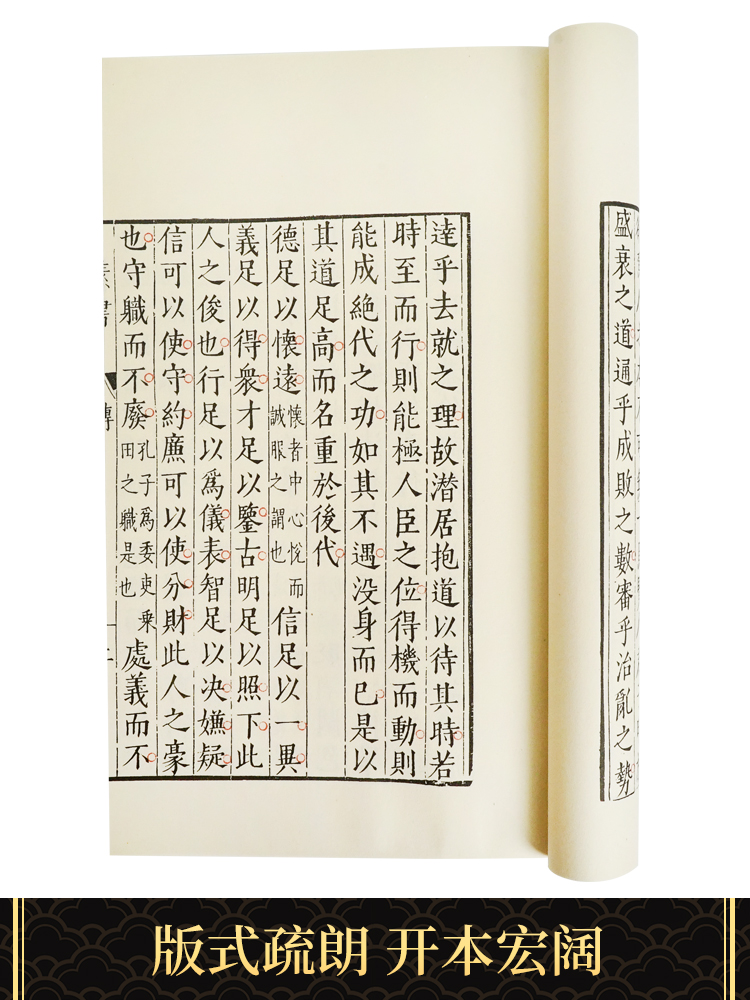 盛衰之道通乎成敗之數審乎治亂之勢
達乎去就之理故潜居抱道以待其時若
時至而行則能極人臣之位得機而動則
能成絶代之功如其不遇没身而已是以
其道足高而名重於後代
德足以懷遠懷者中心悅而誠服之謂也信足以一異
義足以得衆才足以鑒古明足以照下此
人之俊也行足以爲儀表智足以决嫌疑
信可以使守約廉可以使分財此人之豪
也守軄而不廢孔子爲委吏乗田之軄是也處義而不
版式疏朗 开本宏阔